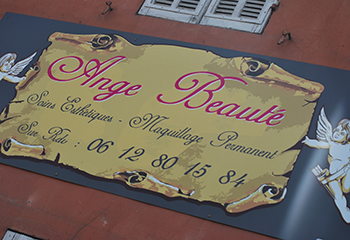 Ange Beauté
Soins Esthétiques - Maquillage Permanent
Sur Rdv : 06 12 80 15 84